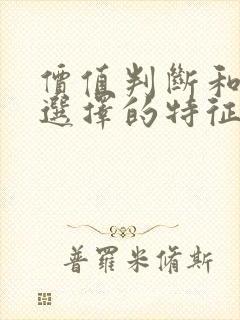 價值判斷和
選擇的特征
普羅米脩斯